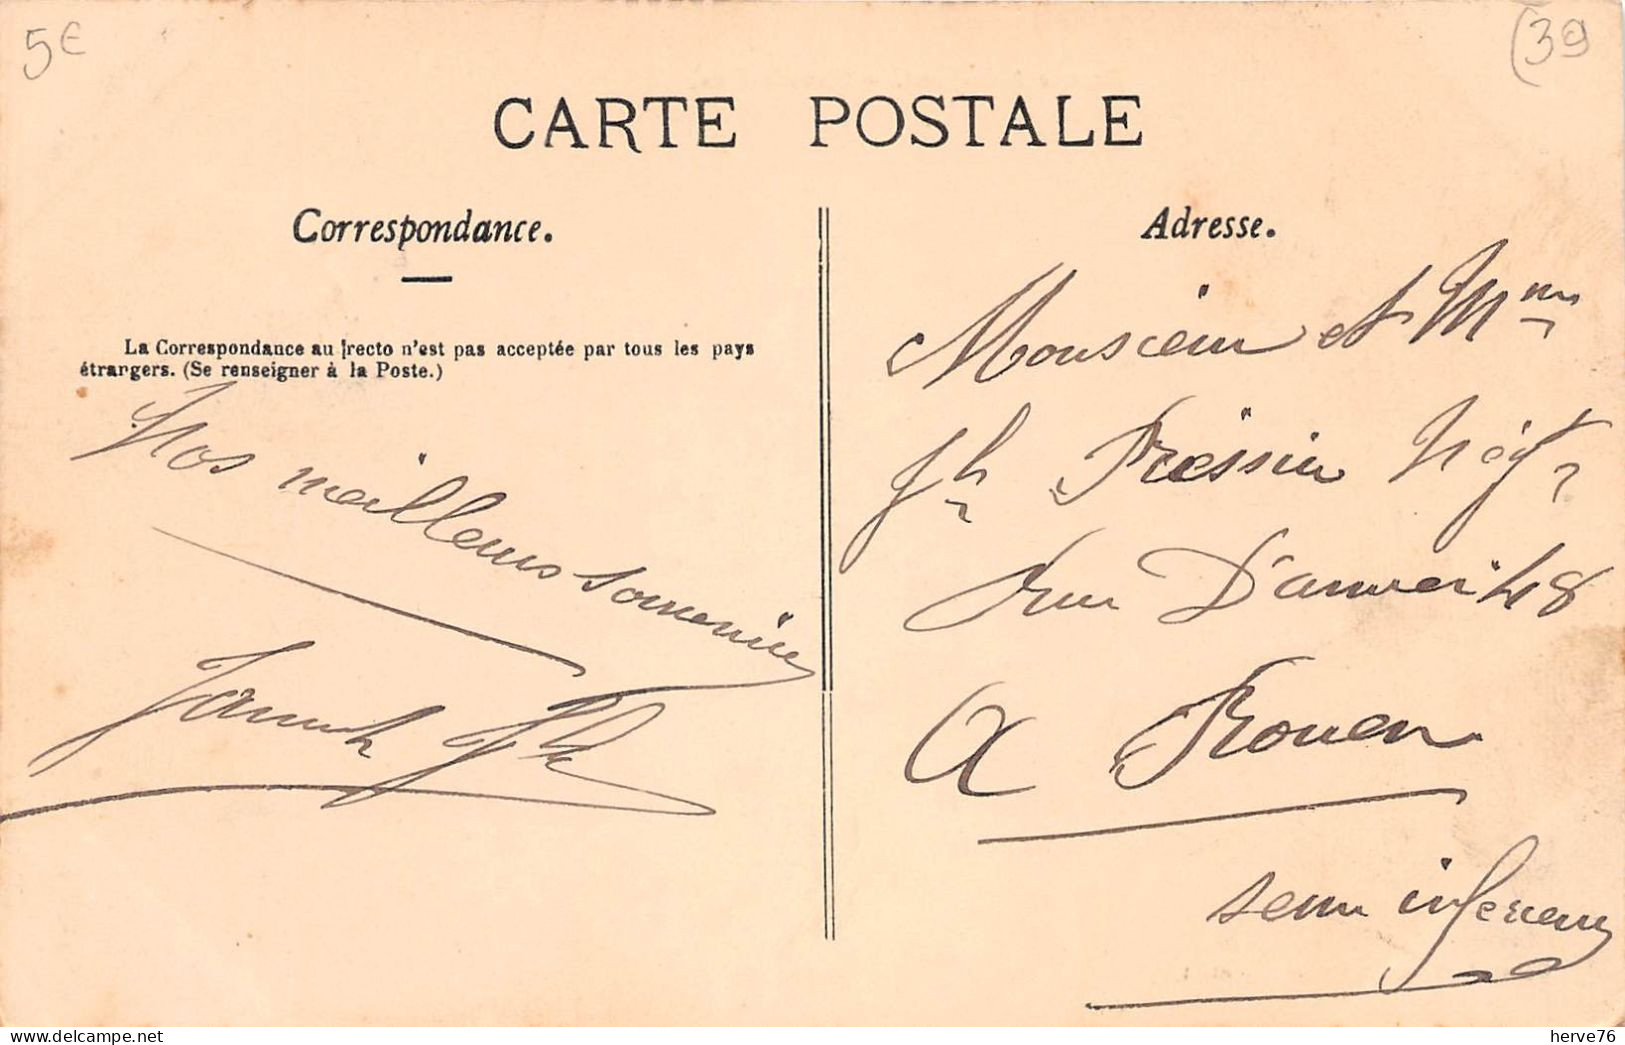 5€
(39
CARTE POSTALE
Correspondance.
La Correspondance au recto n'est pas acceptée par tous les pays
étrangers. (Se renseigner à la Poste.)
Nos meilleurs souvenirs
Adresse.
Monsieur et Mme
Jh Négt
Rue 48
A Rouen
Seine inferieure
herve76